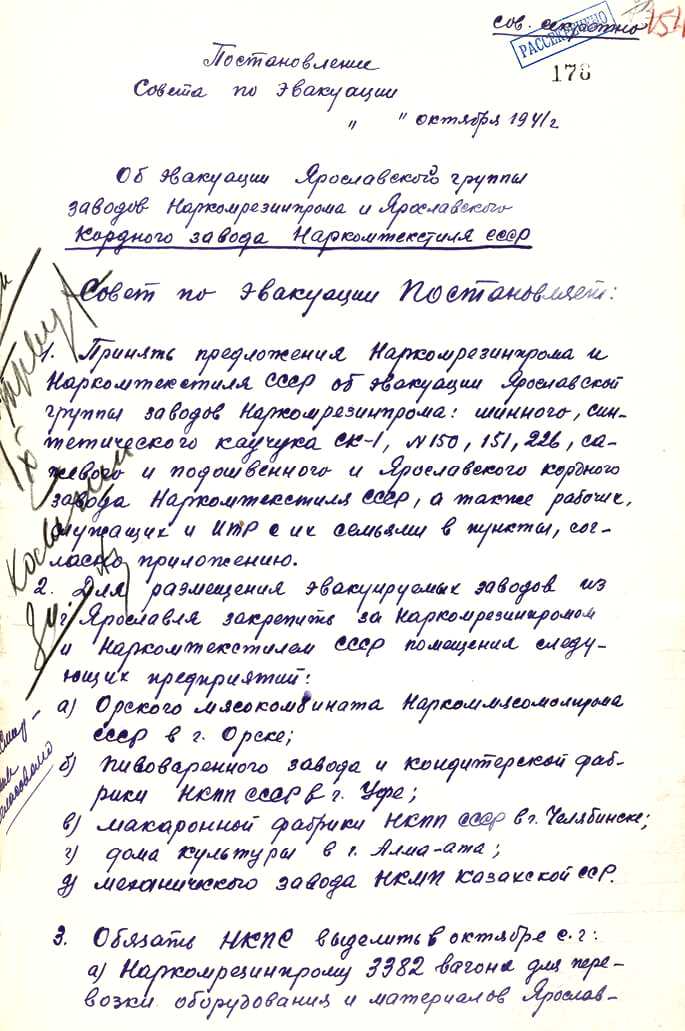 сов. секретно
РАССЕКРЕЧЕНО
154
178
Постановление
Совета по эвакуации
" " октября 1941 г
Об эвакуации Ярославского группы
заводов Наркомрезинпрома и Ярославского
Кордного завода Наркомтекстиля СССР
Совет по эвакуации Постановляет:
1. Принять предложения Наркомрезинпрома и
Наркомтекстиля СССР об эвакуации Ярославской
группы заводов Наркомрезинпрома: шинного, син-
тетического каучука СК-1, №150, 151, 226, са-
жевого и подошвенного и Ярославского кордного
завода Наркомтекстиля СССР, а также рабочих,
служащих и ИТР с их семьями в пункты, сог-
ласно приложению.
2. Для размещения эвакуируемых заводов из
г. Ярославля закрепить за Наркомрезинпромом
и Наркомтекстилем СССР помещения следу-
ющих предприятий:
а) Орского мясокомбината Наркоммясомолпрома
СССР в г. Орске;
б) пивоваренного завода и кондитерской фаб-
рики НКПП СССР в г. Уфе;
в) макаронной фабрики НКПП СССР в г. Челябинске;
г) дома культуры в г. Алма-ата;
д) механического завода НКМП Казахской ССР.
3. Обязать НКПС выделить в октябре с.г:
а) Наркомрезинпрому 3382 вагона для пере-
возки оборудования и материалов Ярослав-